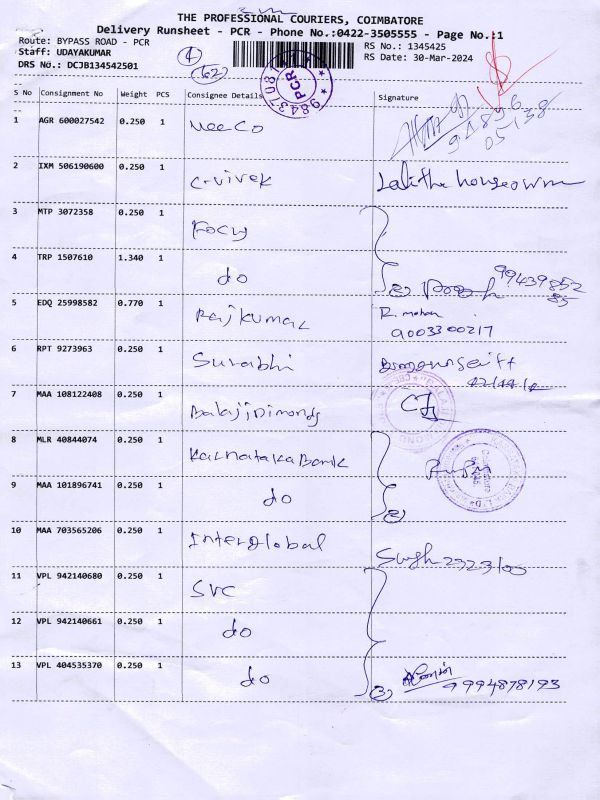 THE PROFESSIONAL COURIERS, COIMBATORE
Delivery Runsheet - PCR - Phone No.:0422-3505555 - Page No.:1
Route: BYPASS ROAD - PCR RS No.: 1345425
Staff: UDAYAKUMAR RS Date: 30-Mar-2024
DRS No.: DCJB134542501
PCR
S No Consignment No Weight PCS Consignee Details Signature
1 AGR 600027542 0.250 1 NeeCo
2 IXM 506190600 0.250 1 C.vivek Lalitha houseowner
3 MTP 3072358 0.250 1 Focus
4 TRP 1507610 1.340 1 do
5 EDQ 25998582 0.770 1 Rajkumar R. mohan
9003300217
6 RPT 9273963 0.250 1 Surabhi
7 MAA 108122408 0.250 1 Balaji Dimonds
8 MLR 40844074 0.250 1 Karnataka Bank
9 MAA 101896741 0.250 1 do
10 MAA 703565206 0.250 1 Interglobal
11 VPL 942140680 0.250 1 SVC
12 VPL 942140661 0.250 1 do
13 VPL 404535370 0.250 1 do 9994878193